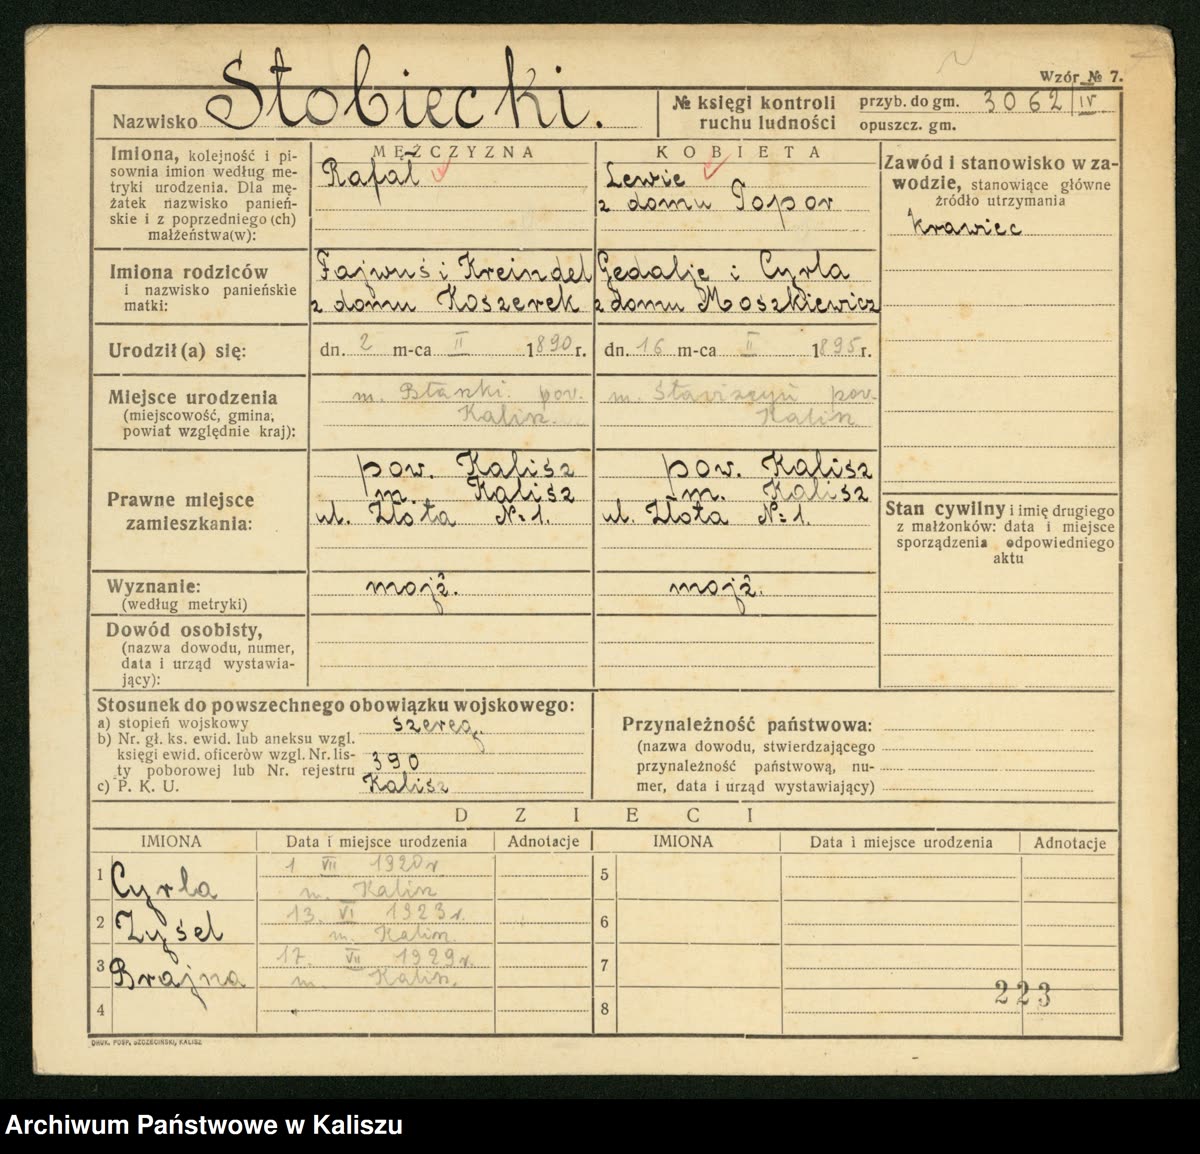 Wzór № 7.
Nazwisko Słobiecki.
№ księgi kontroli ruchu ludności
przyb. do gm. 3062/IV
opuszcz. gm.
Imiona, kolejność i pi-
sownia imion według me-
tryki urodzenia. Dla mę-
żatek nazwisko panień-
skie i z poprzedniego (ch)
małżeństwa(w):
MĘŻCZYZNA
Rafał
KOBIETA
Lewie
z domu Topor
Zawód i stanowisko w za-
wodzie, stanowiące główne
źródło utrzymania
krawiec
Imiona rodziców
i nazwisko panieńskie
matki:
Fajwuś i Kreindel
z domu Koszerek
Gedalje i Cyrla
z domu Moszkiewicz
Urodził (a) się:
dn. 2 m-ca II 1890 r.
dn. 16 m-ca II 1895 r.
Miejsce urodzenia
(miejscowość, gmina,
powiat względnie kraj):
m. Błaszki. pow.
Kalisz.
m. Stawiszyn pow.
Kalisz.
Prawne miejsce
zamieszkania:
pow. Kalisz
m. Kalisz
ul. Złota №1.
pow. Kalisz
m. Kalisz
ul. Złota №1.
Stan cywilny i imię drugiego
z małżonków: data i miejsce
sporządzenia odpowiedniego
aktu
Wyznanie:
(według metryki)
mojż.
mojż.
Dowód osobisty,
(nazwa dowodu, numer,
data i urząd wystawia-
jący):
Stosunek do powszechnego obowiązku wojskowego:
a) stopień wojskowy szereg.
b) Nr. gł. ks. ewid. lub aneksu wzgl.
księgi ewid. oficerów wzgl. Nr. lis-
ty poborowej lub Nr. rejestru 390
c) P. K. U. Kalisz
Przynależność państwowa:
(nazwa dowodu, stwierdzającego
przynależność państwową, nu-
mer, data i urząd wystawiający)
DZIECI
IMIONA Data i miejsce urodzenia Adnotacje IMIONA Data i miejsce urodzenia Adnotacje
1 Cyrla 1 VII 1920 r
m. Kalisz
5
2 Zyśel 13. VI 1923 r.
m. Kalisz.
6
3 Brajna 17. VII 1929 r.
m. Kalisz.
7
4
8
223
DRUK. POSP. SZCZECIŃSKI, KALISZ
Archiwum Państwowe w Kaliszu